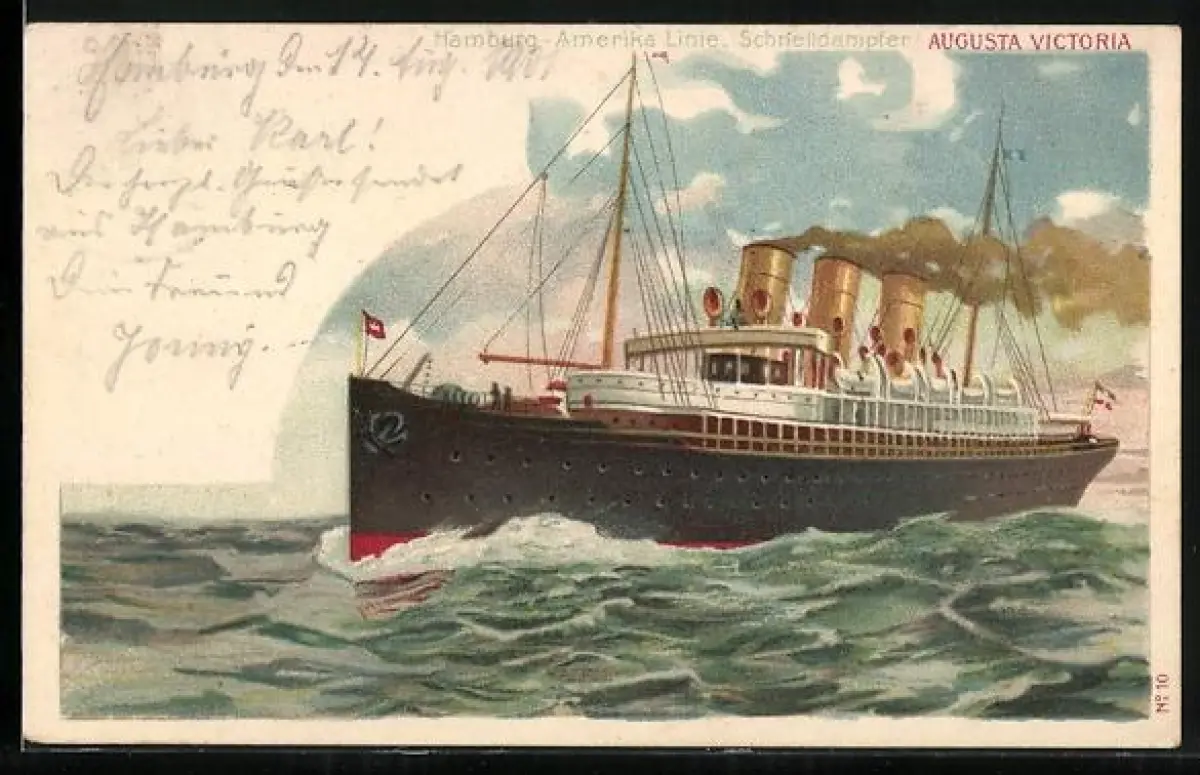 Hamburg-Amerika Linie. Schnelldampfer AUGUSTA VICTORIA
Hamburg den 14. Aug. 1901
Lieber Karl!
Die herzl. Grüße sendet
aus Hamburg
Dein Freund
Nº 10